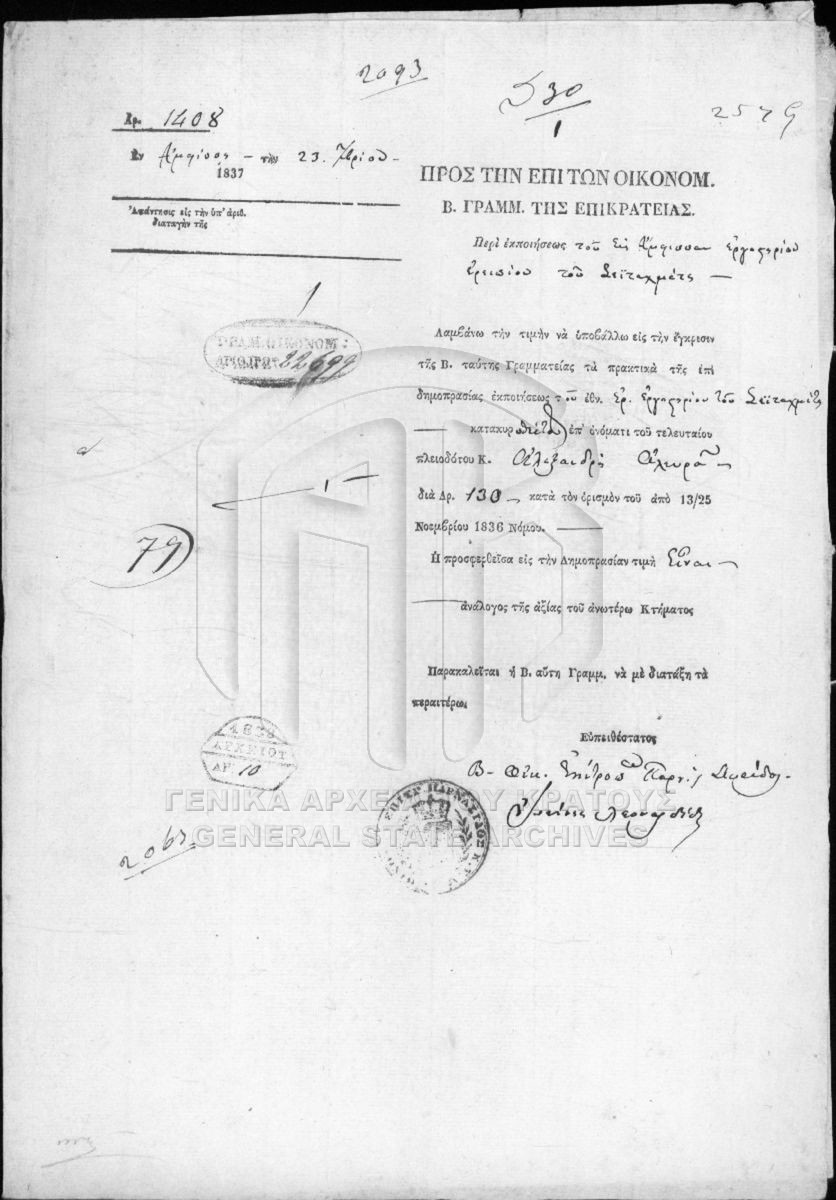 2093
530
1
2579
Ἀρ. 1408
Ἐν Ἀμφίσσῃ — τὴν 23.
1837
Ἀπάντησις εἰς τὴν ὑπ' ἀριθ.
διαταγὴν τῆς
ΠΡΟΣ ΤΗΝ ΕΠΙ ΤΩΝ ΟΙΚΟΝΟΜ.
Β. ΓΡΑΜΜ. ΤΗΣ ΕΠΙΚΡΑΤΕΙΑΣ.
Περὶ ἐκποιήσεως τοῦ
ἐρειπίου τοῦ Σεϊταχμέτη —
1
ΓΡΑΜ. ΟΙΚΟΝΟΜ:
ΑΡΙΘ. ΠΡΩΤ. 22699
Λαμβάνω τὴν τιμὴν νὰ ὑποβάλλω εἰς τὴν ἔγκρισιν
τῆς Β. ταύτης Γραμματείας τὰ πρακτικὰ τῆς ἐπὶ
δημοπρασίας ἐκποιήσεως τοῦ ἐθν. ἐρ. ἐργαστηρίου τοῦ Σεϊταχμέτη
— κατακυρωθέντος ἐπ' ὀνόματι τοῦ τελευταίου
πλειοδότου Κ. Ἀλεξανδρῆ
διὰ Δρ. 130 — κατὰ τὸν ὁρισμὸν τοῦ ἀπὸ 13/25
Νοεμβρίου 1836 Νόμου. —
79
Ἡ προσφερθεῖσα εἰς τὴν Δημοπρασίαν τιμὴ εἶναι —
— ἀνάλογος τῆς ἀξίας τοῦ ἀνωτέρω Κτήματος
Παρακαλεῖται ἡ Β. αὕτη Γραμμ. νὰ μὲ διατάξῃ τὰ
περαιτέρω.
Εὐπειθέστατος
1838
ΑΡΧΕΙΟΥ
ΑΡ. 10
Β. Οἰκ. Ἐπίτροπ.
ΓΕΝΙΚΑ ΑΡΧΕΙΑ ΤΟΥ ΚΡΑΤΟΥΣ
GENERAL STATE ARCHIVES